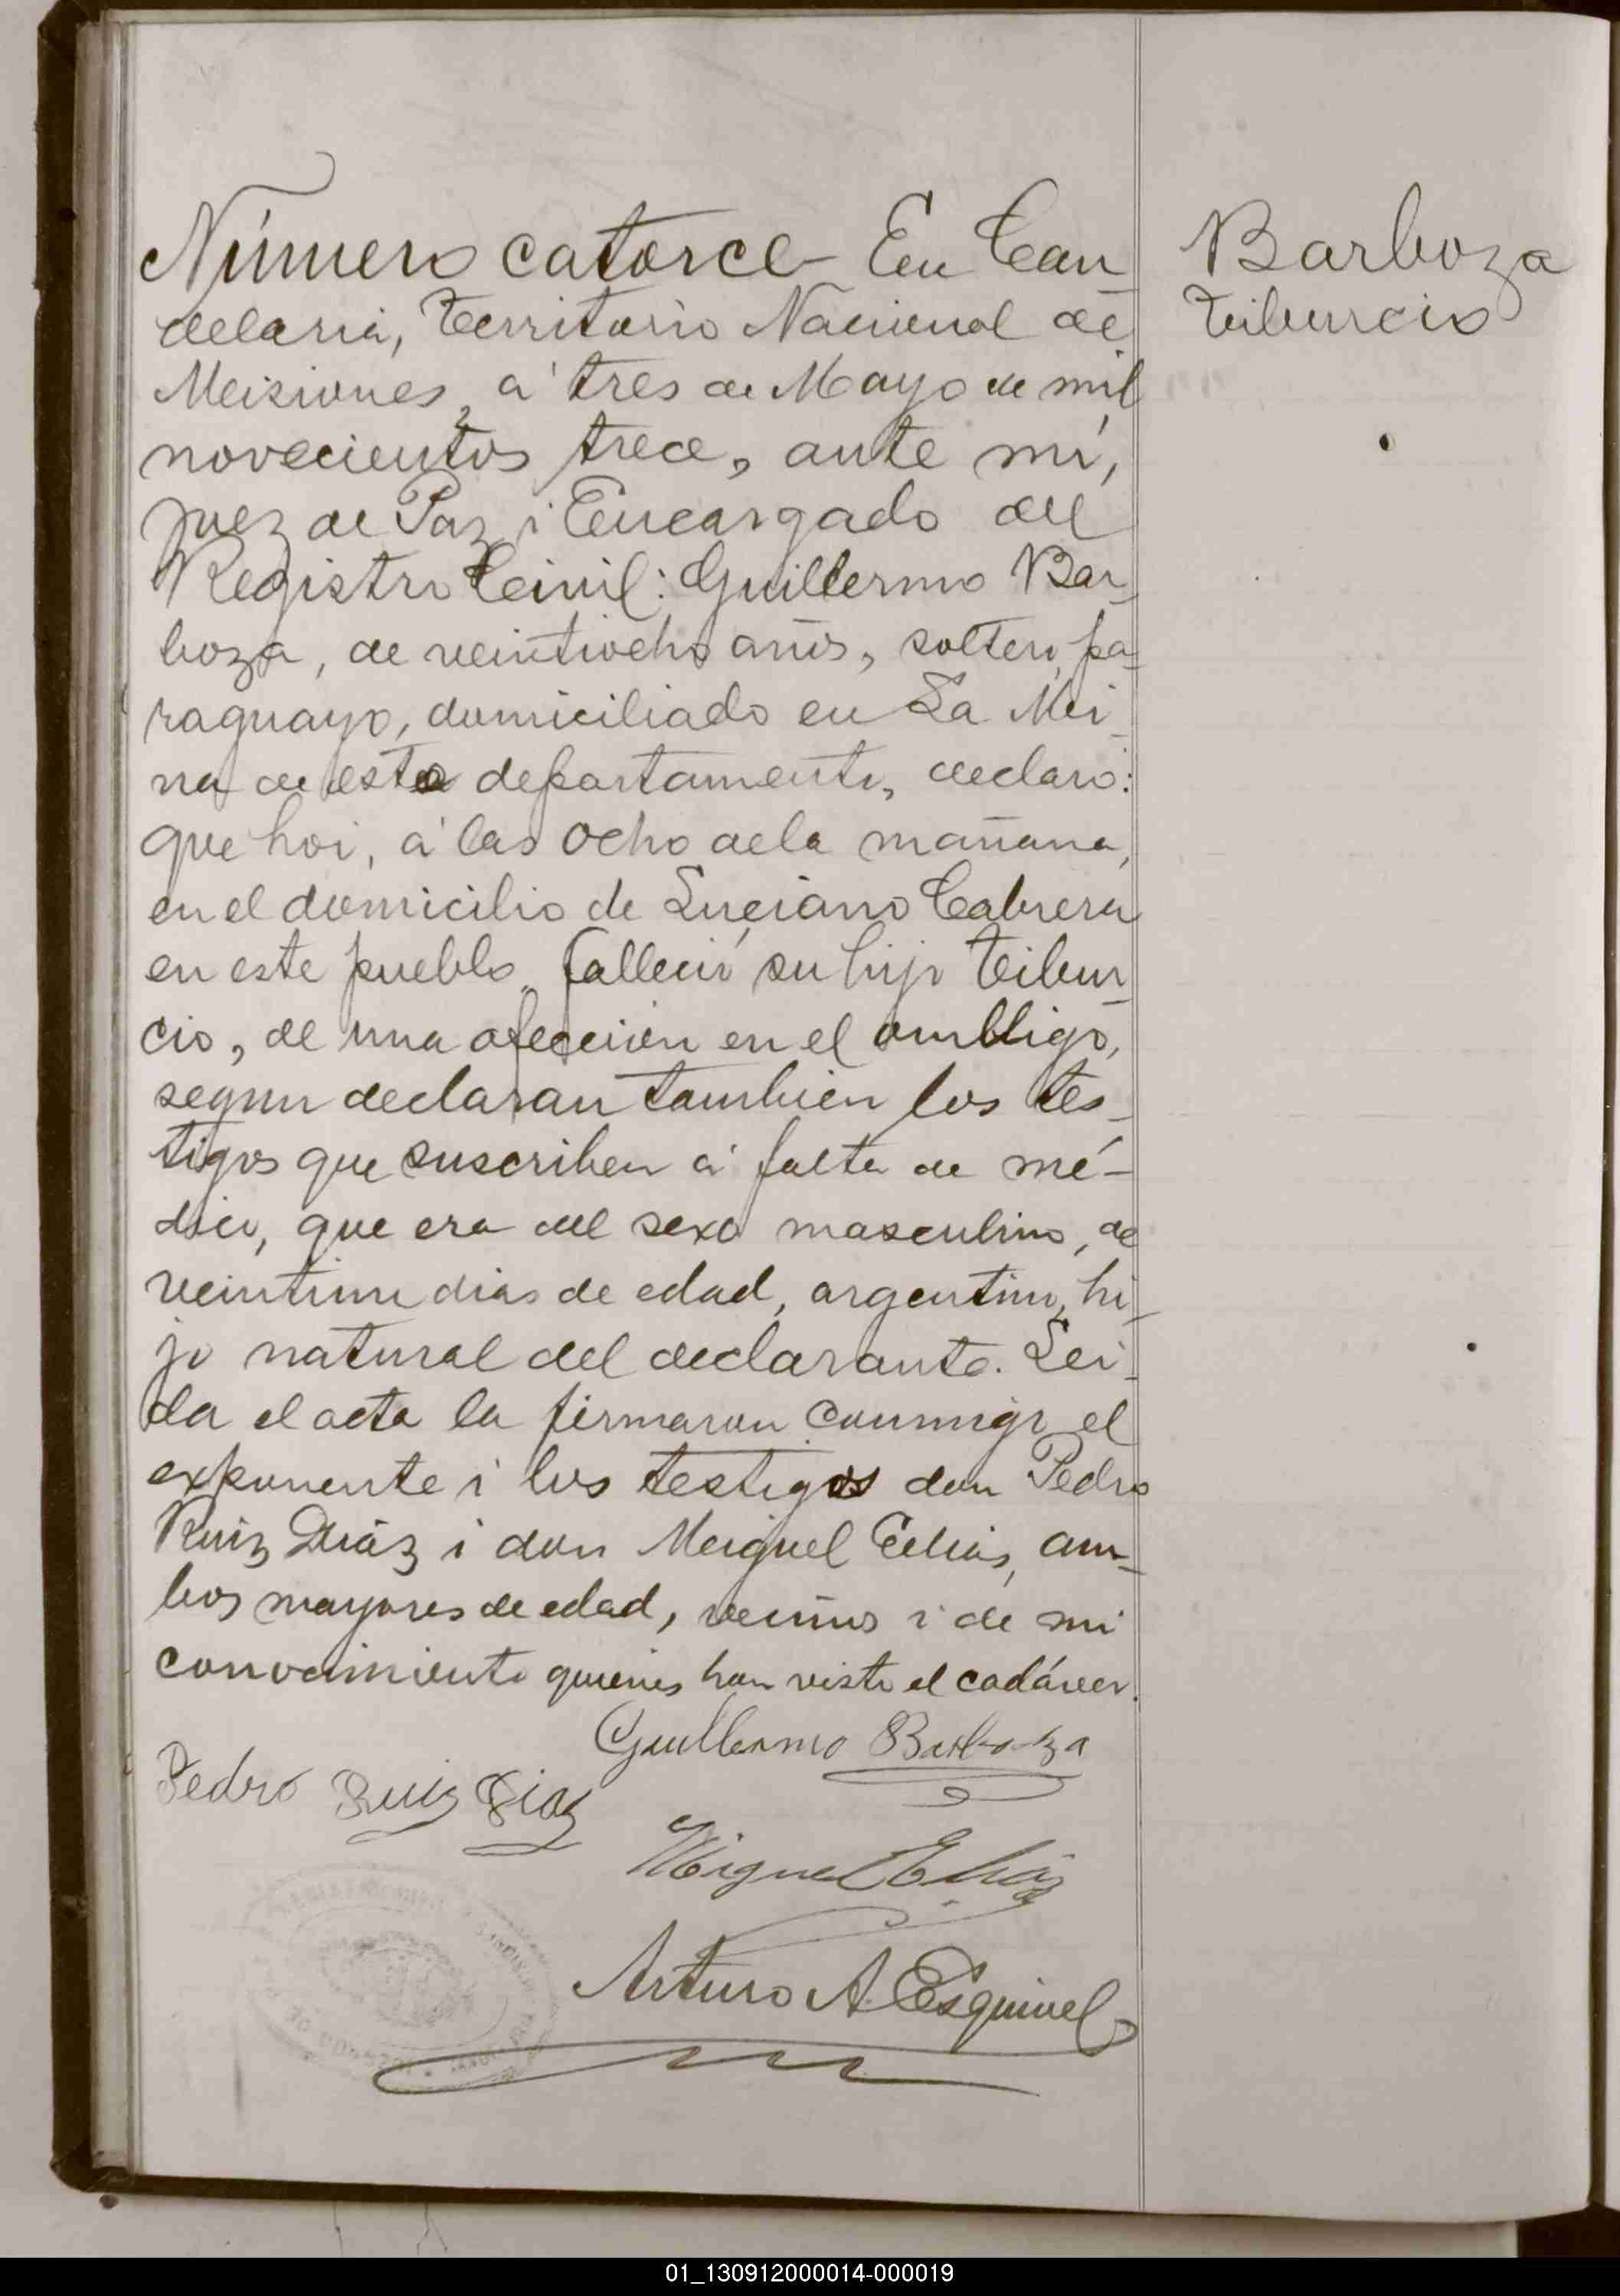 Barboza
Tiburcio
Número catorce En Can-
delaria, Territorio Nacional de
Misiones, á tres de Mayo de mil
novecientos trece, ante mí,
Juez de Paz i Encargado del
Registro Civil: Guillermo Bar-
boza, de veintiocho años, soltero, pa-
raguayo, domiciliado en La Mi-
na de este departamento, declaró:
que hoi, á las ocho de la mañana,
en el domicilio de Luciano Cabrera
en este pueblo, falleció su hijo Tibur-
cio, de una afección en el ombligo,
segun declaran tambien los tes-
tigos que suscriben á falta de mé-
dico, que era del sexo masculino, de
veintiun dias de edad, argentino, hi-
jo natural del declarante. Lei-
da el acta la firmaron conmigo el
exponente i los testigos don Pedro
Ruiz Diáz i don Miguel Elias, am-
bos mayores de edad, vecinos i de mi
conocimiento quienes han visto el cadáver.
Guillermo Barboza
Pedro Ruiz Diaz
Miguel Eliaz
Arturo A. Esquivel
01_130912000014-000019